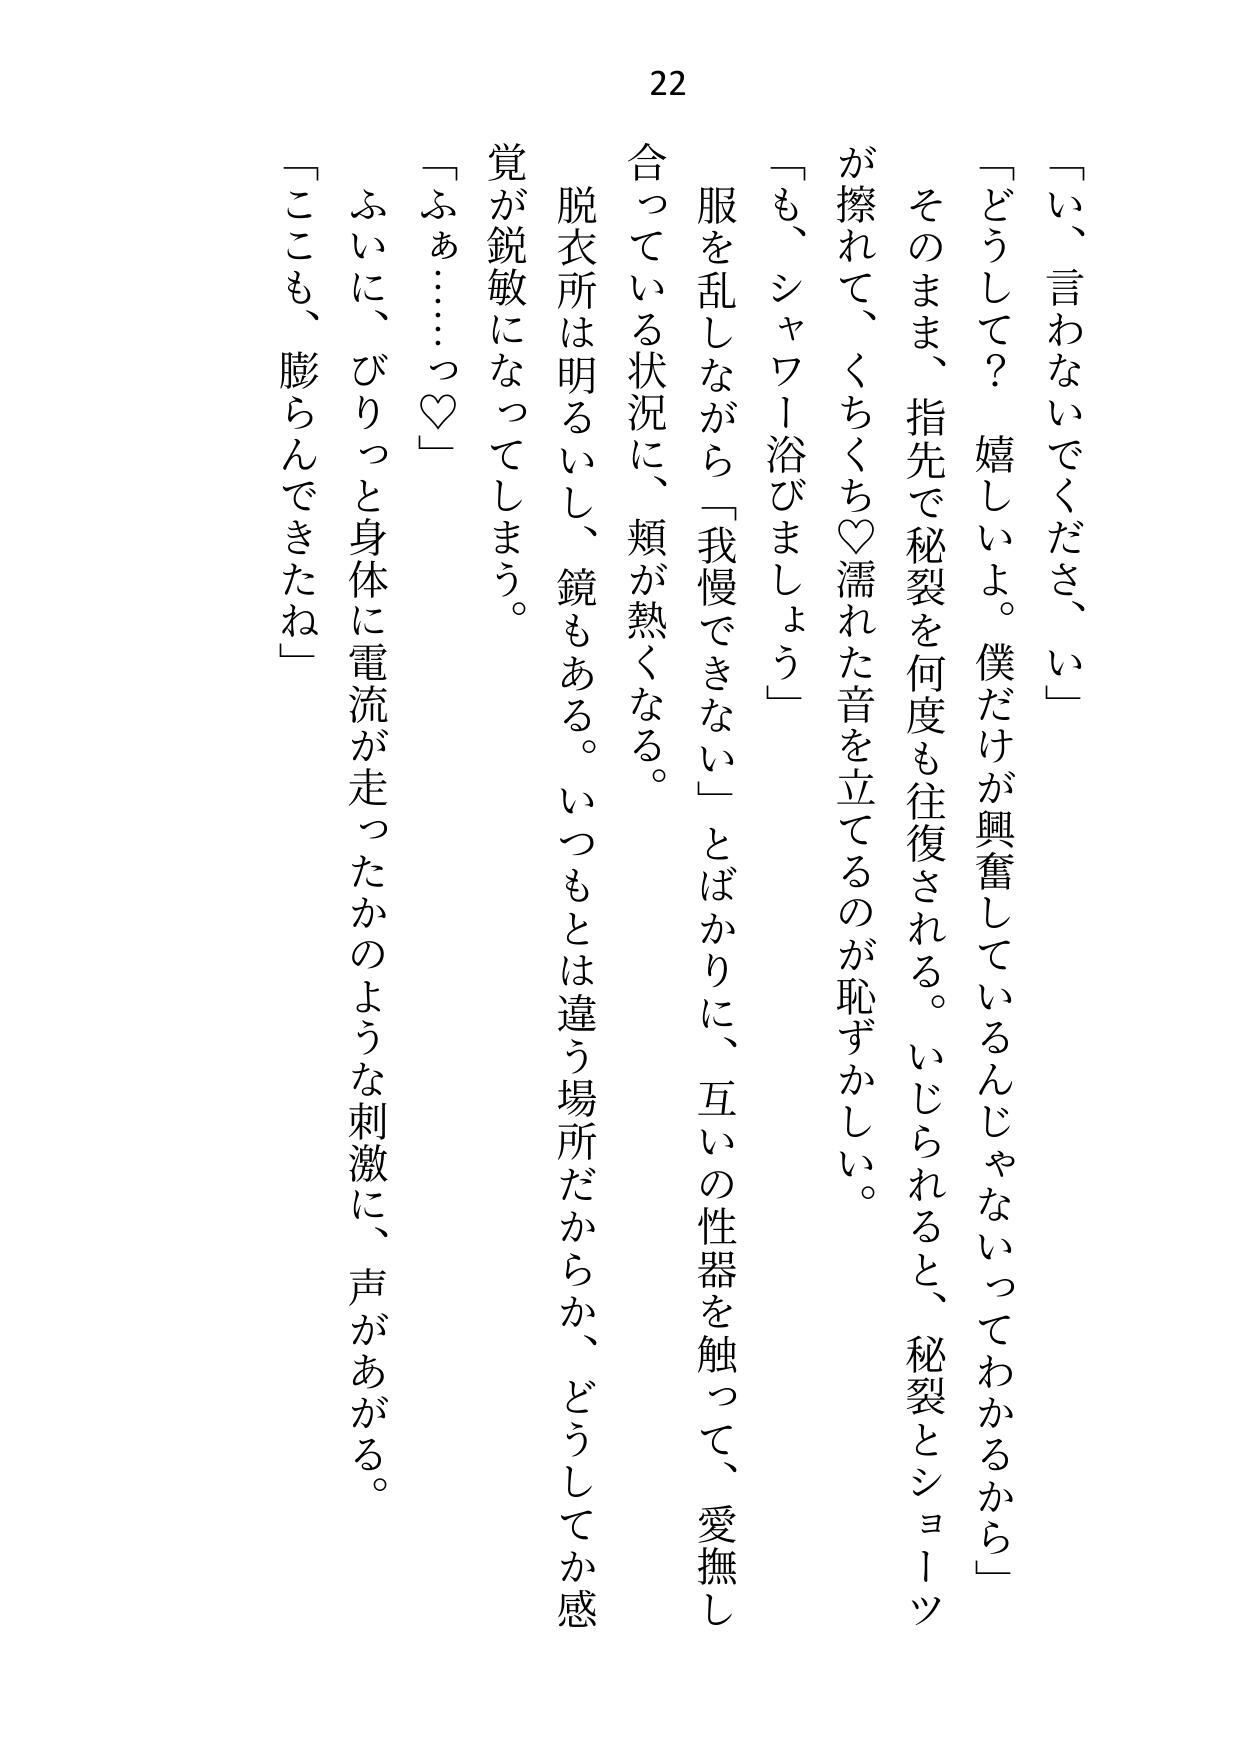 22
「い、言わないでくださ、い」
「どうして？　嬉しいよ。僕だけが興奮しているんじゃないってわかるから」
　そのまま、指先で秘裂を何度も往復される。いじられると、秘裂とショーツ
が擦れて、くちくち♡濡れた音を立てるのが恥ずかしい。
「も、シャワー浴びましょう」
　服を乱しながら「我慢できない」とばかりに、互いの性器を触って、愛撫し
合っている状況に、頬が熱くなる。
　脱衣所は明るいし、鏡もある。いつもとは違う場所だからか、どうしてか感
覚が鋭敏になってしまう。
「ふぁ……っ♡」
　ふいに、びりっと身体に電流が走ったかのような刺激に、声があがる。
「ここも、膨らんできたね」